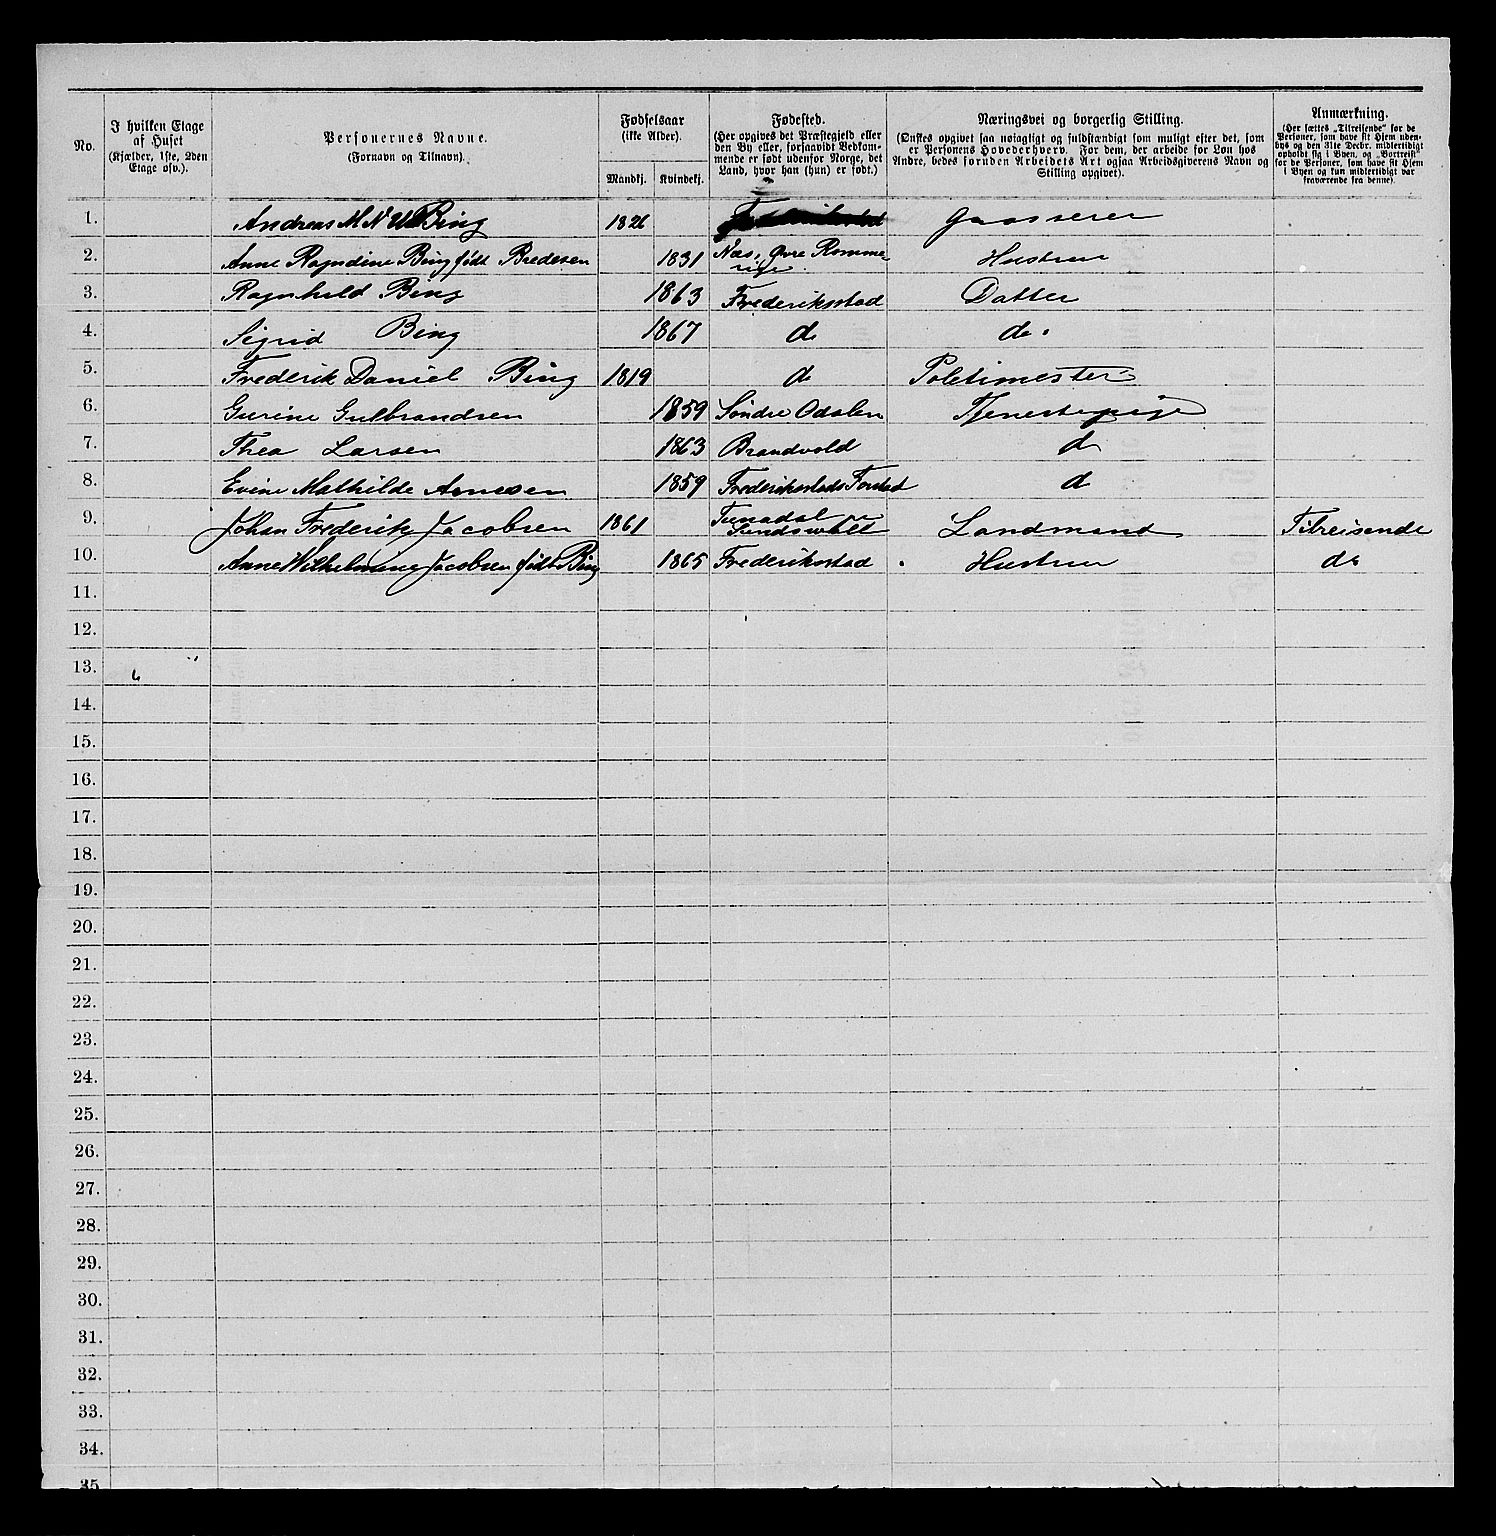 No.
I hvilken Etage
af Huset
(Kjælder, 1ste, 2den
Etage osv.).
Personernes Navne.
(Fornavn og Tilnavn).
Fødselsaar
(ikke Alder).
Mandkj.
Kvindekj.
Fødested.
(Her opgives det Præstegjeld eller
den By eller, forsaavidt Vedkom-
mende er født udenfor Norge, det
Land, hvor han (hun) er født.)
Næringsvei og borgerlig Stilling.
(Ønskes opgivet saa nøiagtigt og fuldstændigt som muligt efter det, som
er Personens Hovederhverv. For dem, der arbeide for Løn hos
Andre, bedes foruden Arbeidets Art ogsaa Arbeidsgiverens Navn og
Stilling opgivet).
Anmærkning.
(Her sættes „Tilreisende" for de
Personer, som have sit Hjem uden-
bys og den 31te Decbr. midlertidigt
opholdt sig i Byen, og „Bortreist"
for de Personer, som have sit Hjem
i Byen og kun midlertidigt var
fraværende fra denne).
1. Andreas M N U Bing 1826 Grosserer
2. Anne Ragndine Bing født Bredesen 1831 Næs, Øvre Romme-
rige Hustru
3. Ragnhild Bing 1863 Frederiksstad Datter
4. Sigrid Bing 1867 do do.
5. Frederik Daniel Bing 1819 do Politimester
6. Gurine Gulbrandsen 1859 Søndre Odalen Tjenestepige
7. Thea Larsen 1863 Brandvold do
8. Evine Mathilde Arnesen 1859 Frederiksstads Forstad do
9. Johan Frederik Jacobsen 1861 Tunadal
Sundswall Landmand Tilreisende
10. Anne Wilhelmine Jacobsen født Bing 1865 Frederiksstad Hustru do
11.
12.
13.
14.
15.
16.
17.
18.
19.
20.
21.
22.
23.
24.
25.
26.
27.
28.
29.
30.
31.
32.
33.
34.
35.